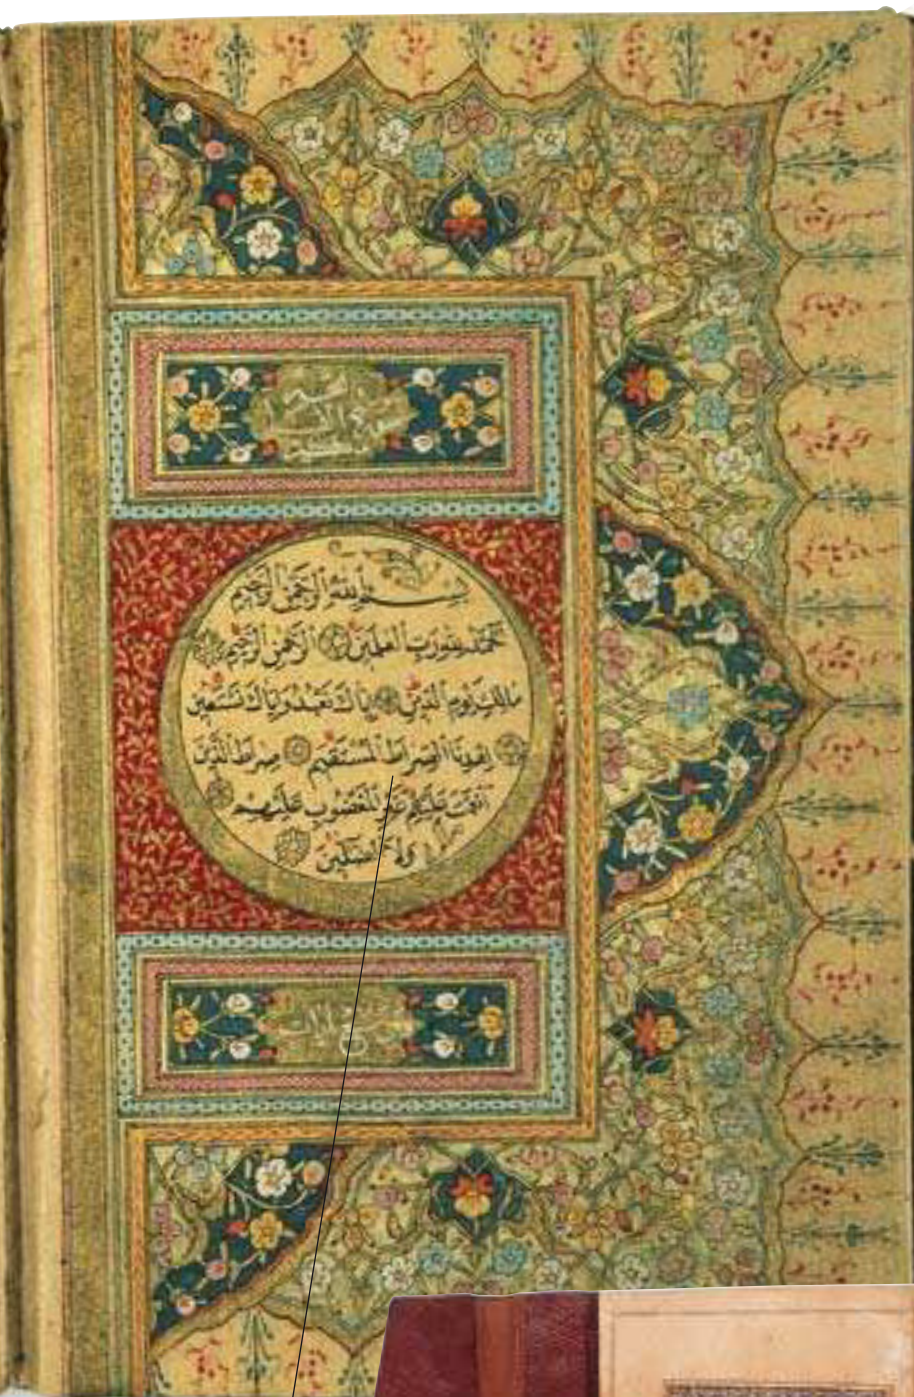 بسم الله الرحمن الرحيم
الحمد لله رب العلمين الرحمن الرحيم
مالك يوم الدين اياك نعبد واياك نستعين
اهدنا الصراط المستقيم صراط الذين
انعمت عليهم غير المغضوب عليهم
ولا الضالين